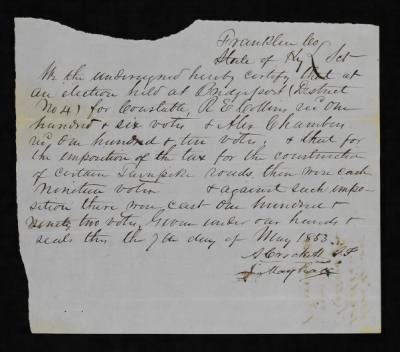 Franklin Co
State of Ky Sct
We the undersigned hereby certify that at
an election held at Bridgeport (District
No 4) for Constable, R. E. Collins recd one
hundred & six votes & Alex Chambers
recd one hundred & ten votes & that for
the imposition of the tax for the construction
of certain Turnpike roads, there were cast
nineteen votes & against such impo-
sition there were cast one hundred &
ninety two votes. Given under our hands &
seals this the 7th day of May 1853.
A Crockett